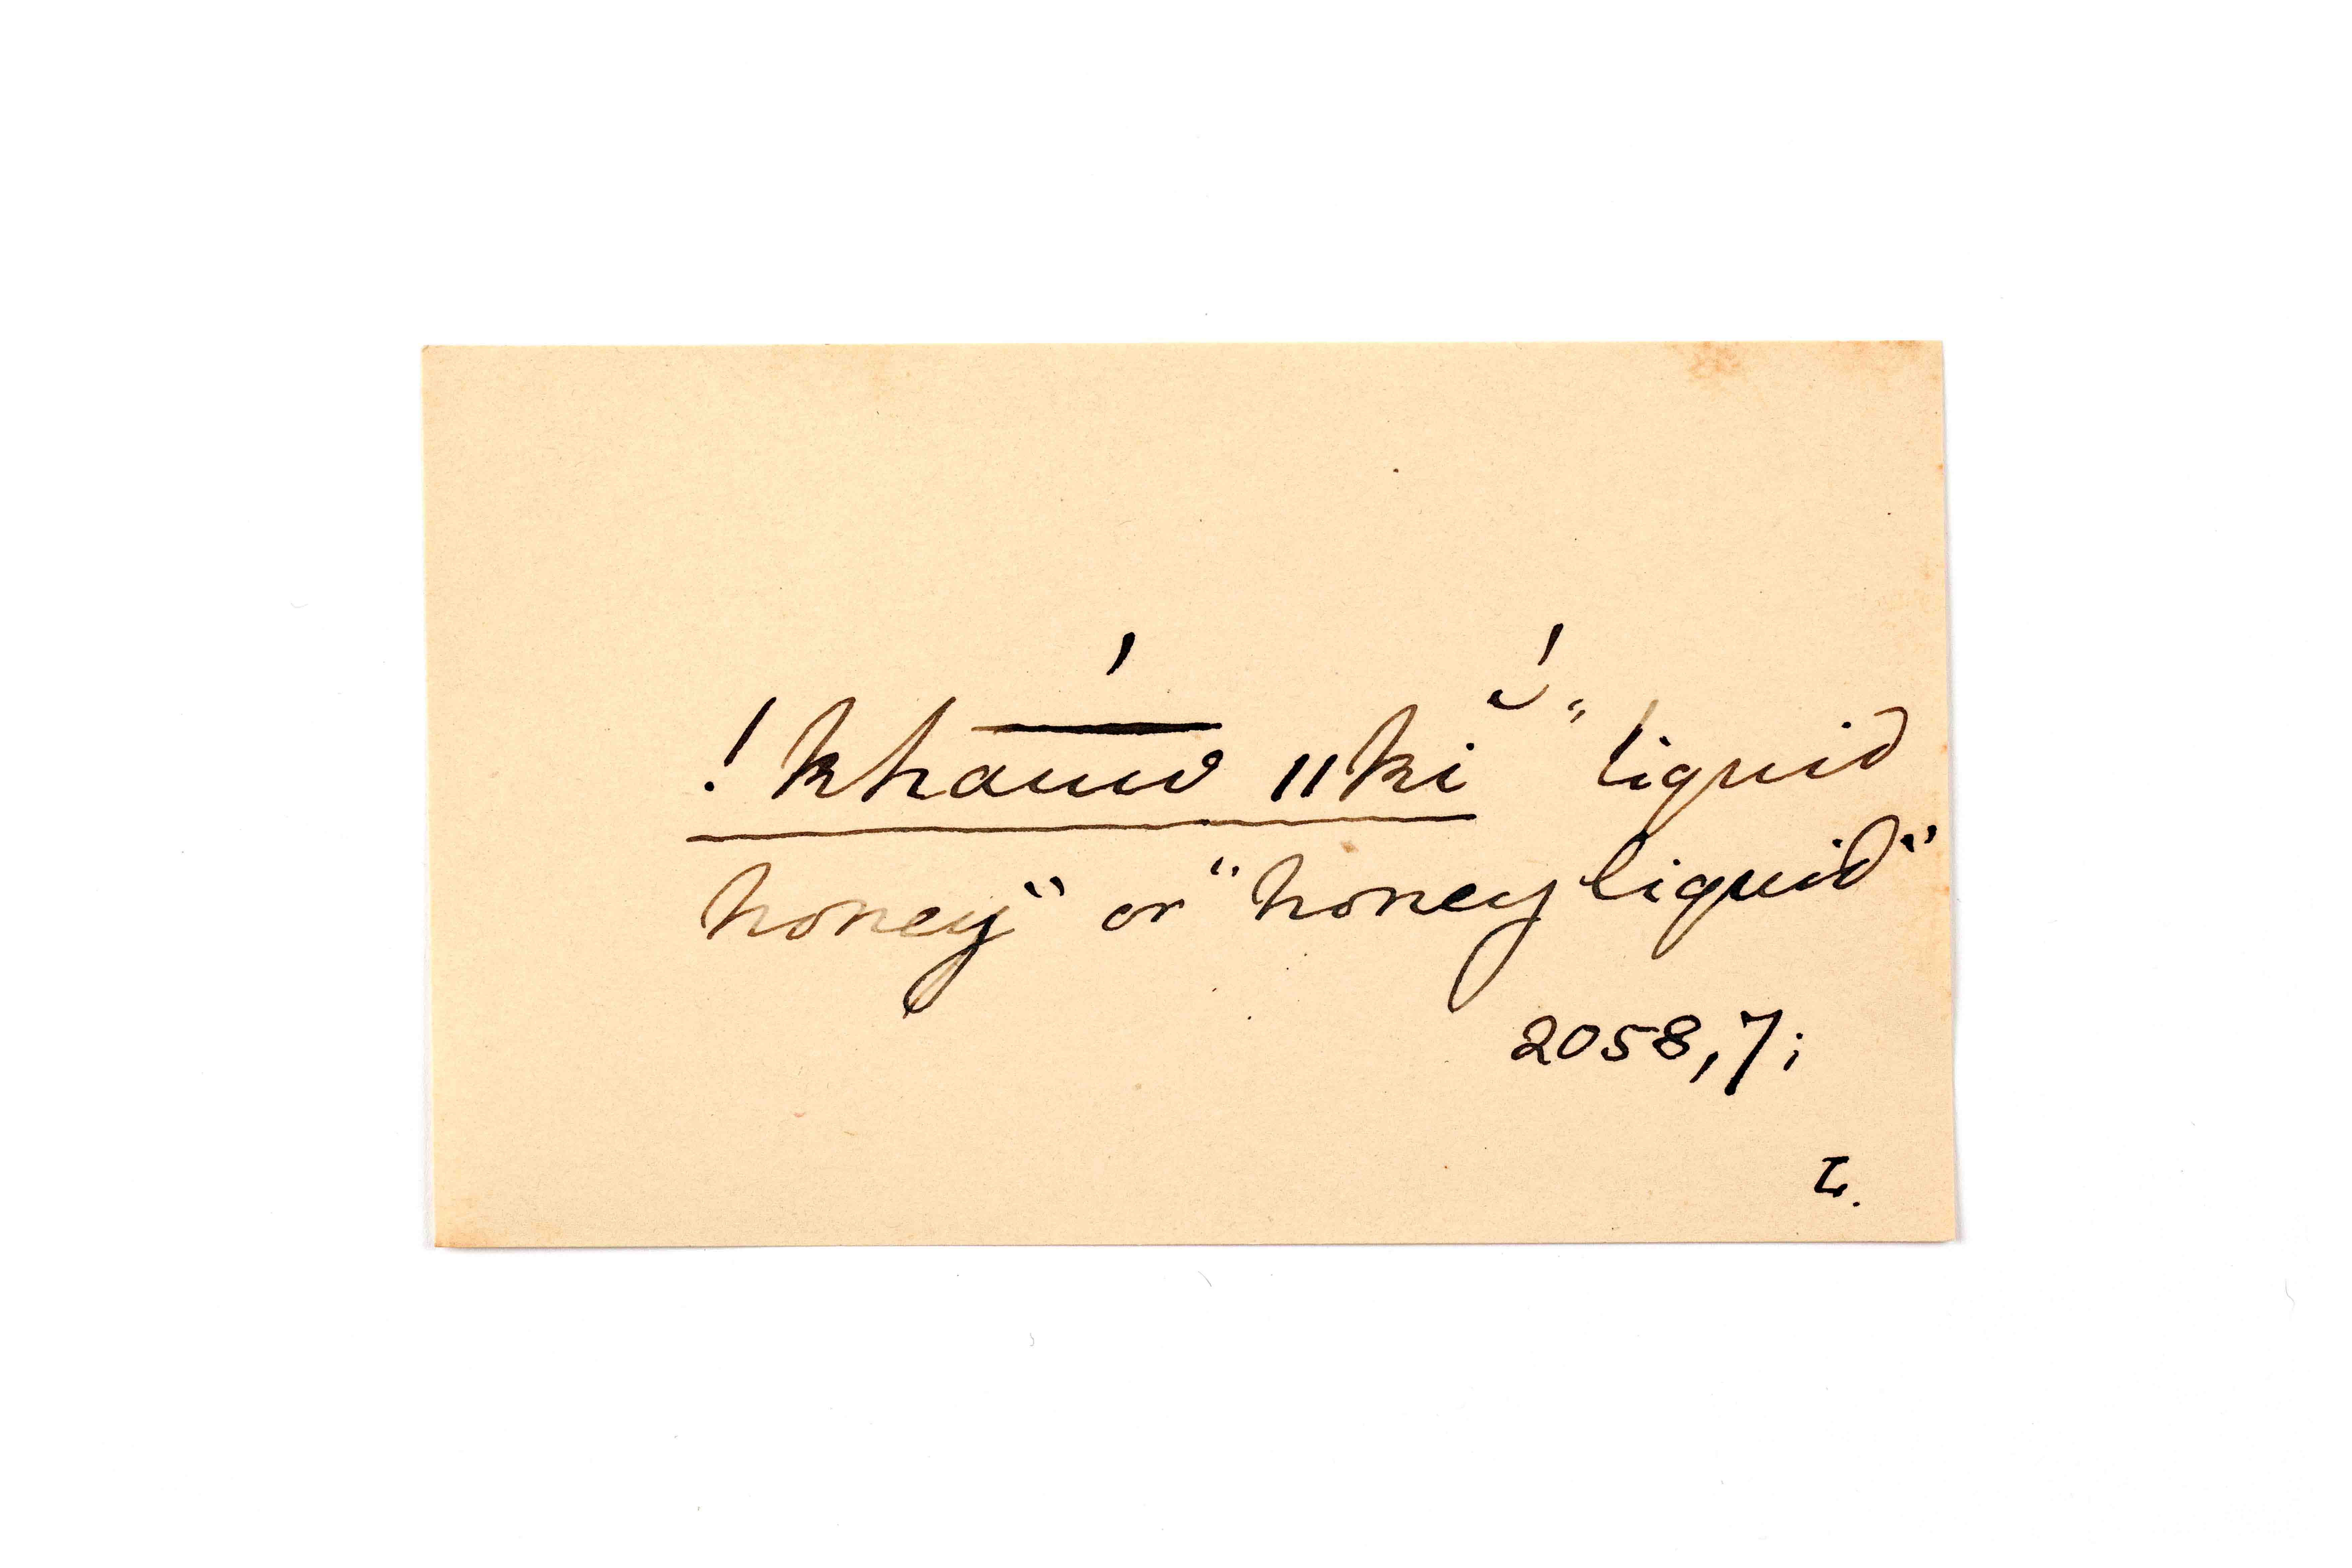 !khā́uw ǁkĭ́ "liquid
honey" or "honey liquid"
2058, 7;
L.